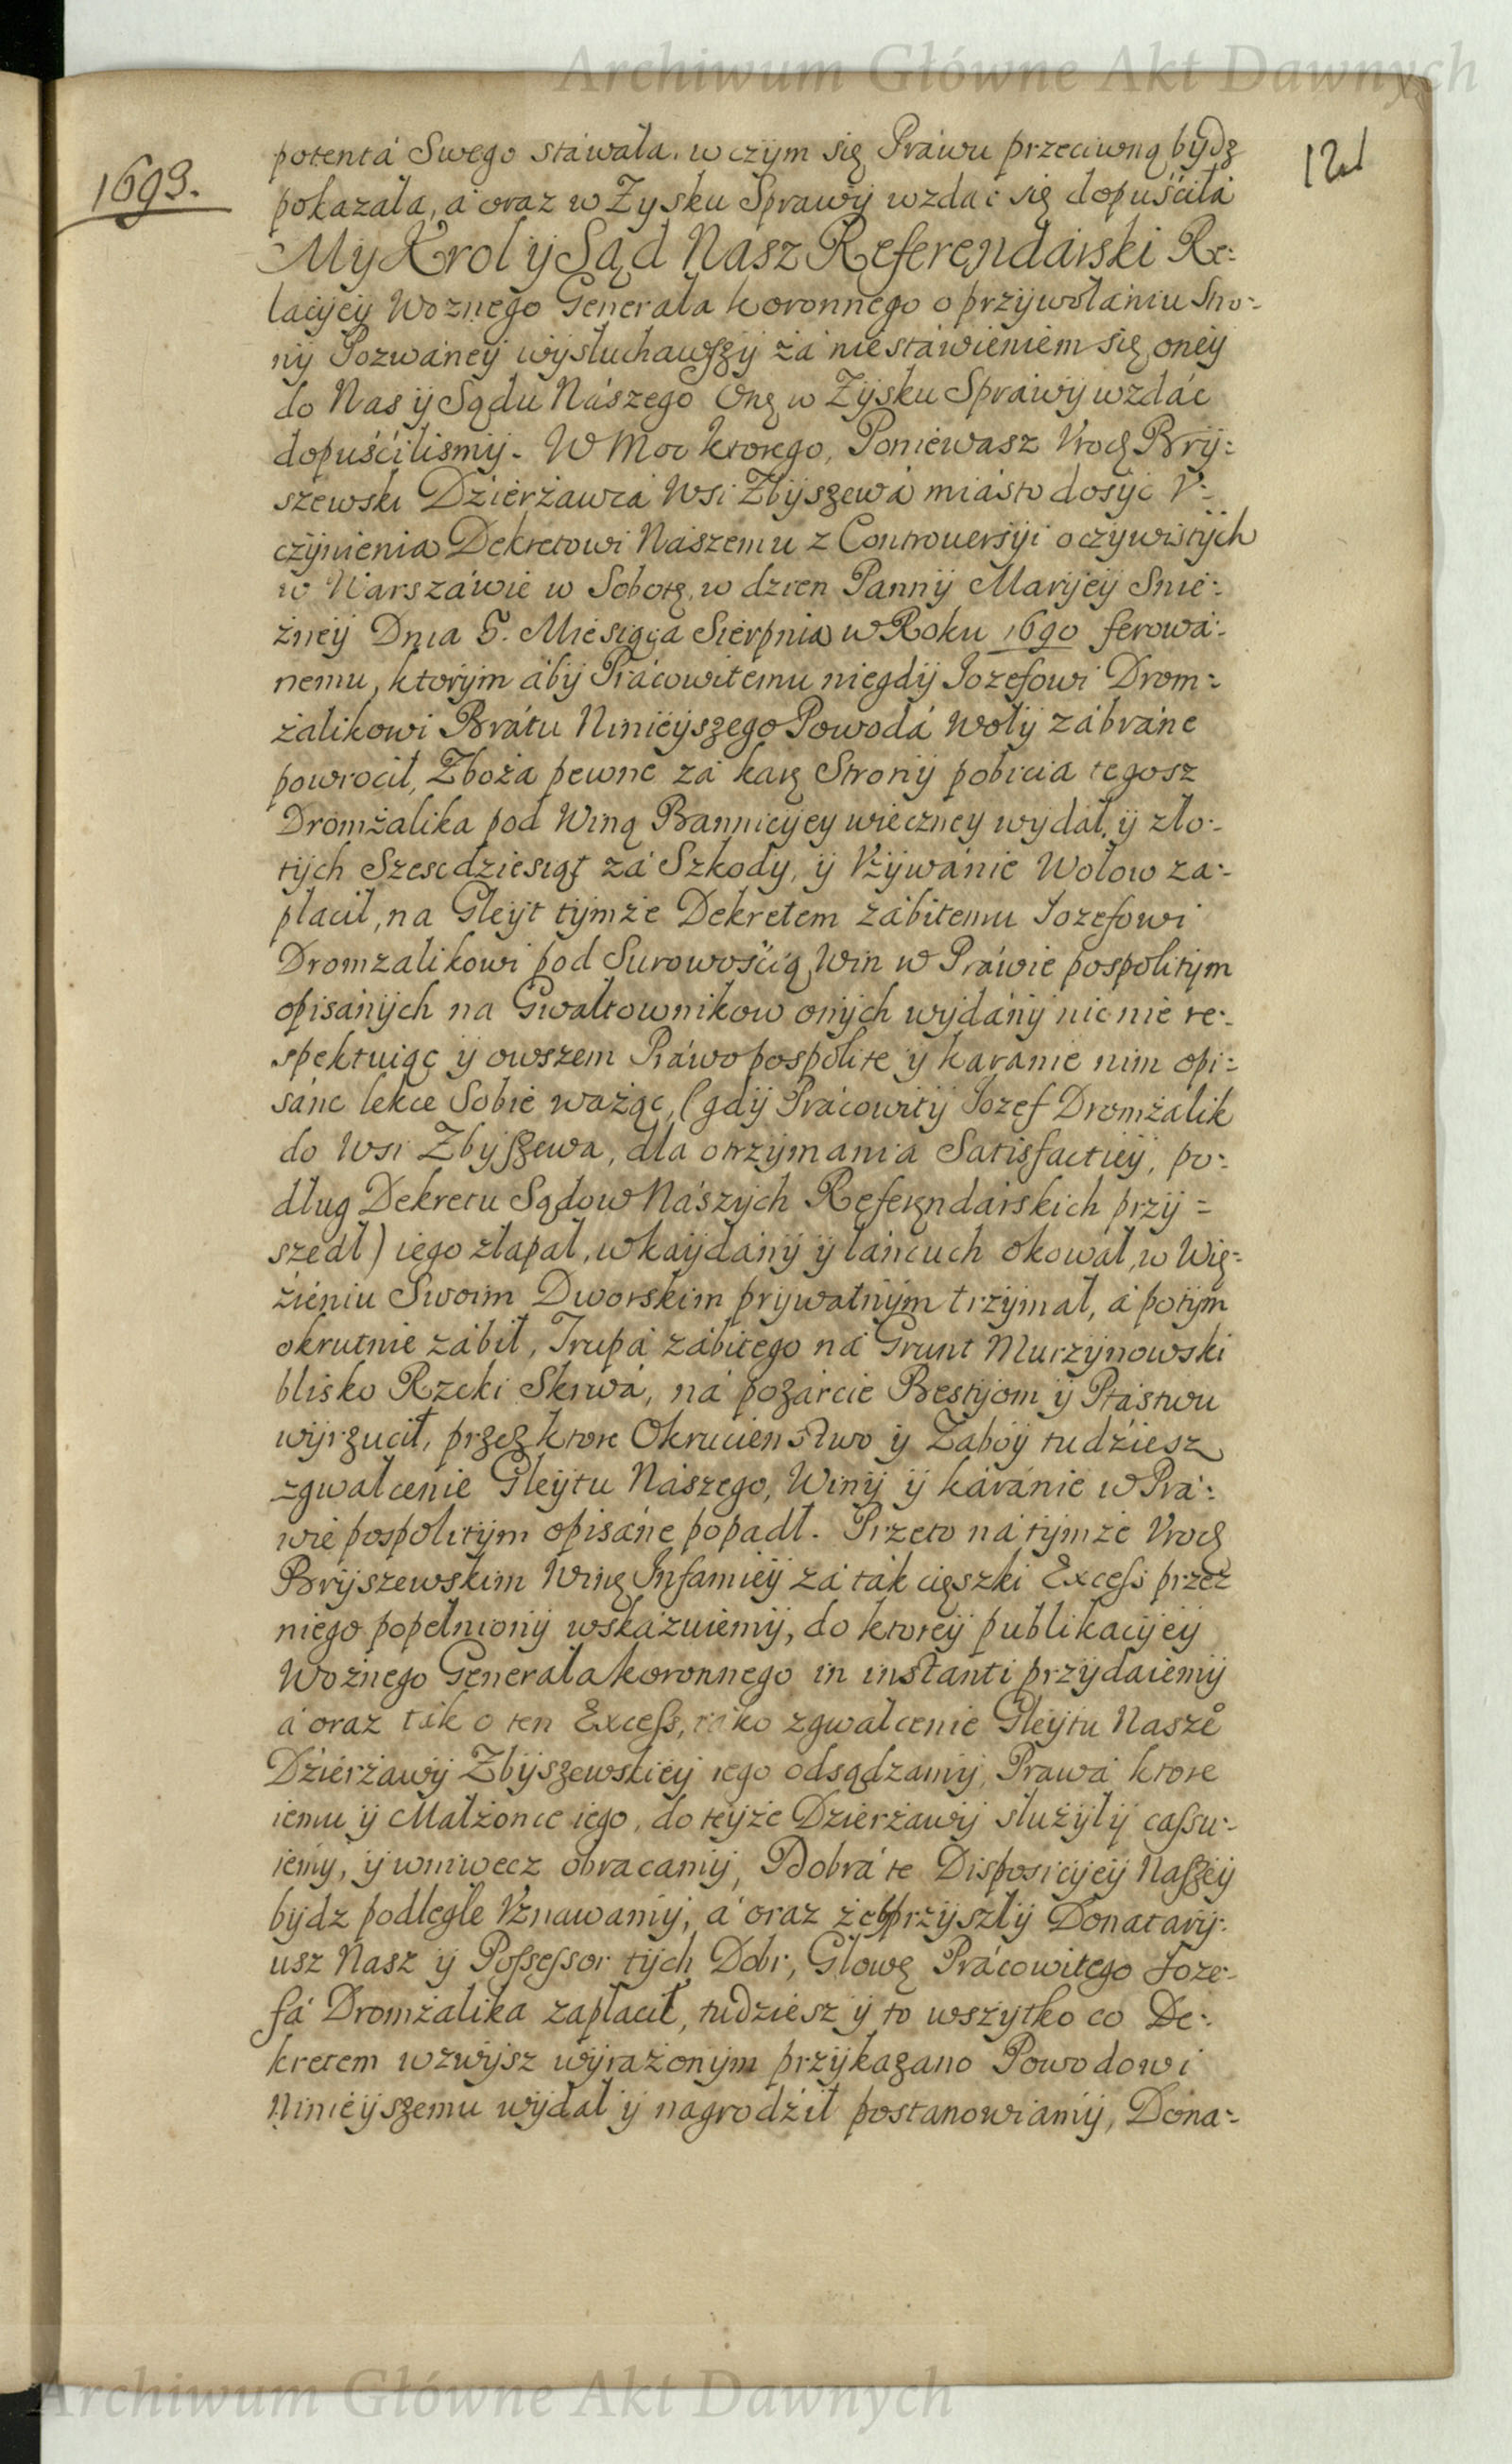 Archiwum Główne Akt Dawnych
1693.
121
potentá Swego stáwałá. w czÿm się Práwu przeciwną bÿdz
pokazáłá, á oraz w Zysku Sprawÿ wzdać się dopuśćiłá
My Krol ÿ Sąd Nasz Referendárski Re:
lacÿeÿ Woznego Generáła koronnego o przÿwołániu Stro:
nÿ Pozwáneÿ wÿsłuchawszÿ zá niestáwieniem się oneÿ
do Nas ÿ Sądu Nászego Onę w Zÿsku Spráwÿ wzdáć
dopuśćilismÿ. W Moc ktorego, Poniewasz Vrodz Brÿ:
szewski Dzierżawcá Wsi Zbÿszewá miásto dosÿć V:
czÿnienia Dekretowi Nászemu z Controuersÿi oczÿwistÿch
w Warszáwie w Sobotę, w dzien Pannÿ Marÿeÿ Snie:
żneÿ Dnia 5. Miesiąca Sierpnia w Roku 1690 ferowá:
nemu, ktorÿm ábÿ Prácowitemu niegdÿ Iozefowi Drom:
żalikowi Brátu Ninieÿszego Powodá Wołÿ zábráne
powrocił, Zboża pewne zá karę Stronÿ pobicia tegosz
Dromżalika pod Winą Bannicÿey wieczney wydał, ÿ zło:
tÿch Szescdziesiąt zá Szkody, ÿ Vżÿwánie Wołow za:
płacił, na Gleÿt tÿmże Dekretem zábitemu Iozefowi
Dromzalikowi pod Surowośćią Win w Práwie pospolitÿm
opisánÿch na Gwałtownikow onÿch wÿdánÿ nic nie re:
spektuiąc ÿ owszem Práwo pospolite ÿ karanie nim opi:
sáne lekce Sobie ważąc, (gdÿ Prácowitÿ Iozef Dromżalik
do Wsi Zbÿszewa, dla otrzÿmania Satisfactieÿ, po:
dług Dekretu Sądow Nászÿch Referendárskich przÿ=
szedł) iego złapał, w kaÿdánÿ ÿ łáńcuch okował, w Wię:
źieniu Swoim Dworskim prÿwatnÿm trzÿmał, á potÿm
okrutnie zábił, Trupá zábitego ná Grunt Murzÿnowski
blisko Rzeki Skrwá, ná pozárcie Bestÿom ÿ Ptástwu
wÿrzucił, przez ktore Okrucienstwo ÿ Zaboÿ tudziesz
zgwałcenie Gleÿtu Nászego, Winÿ ÿ káránie w Prá:
wie pospolitÿm opisáne popadł. Przeto ná tÿmże Vrodz
Brÿszewskim Winę Infamieÿ zá ták cięszki Excess przez
niego popełnionÿ wskázuiemÿ, do ktoreÿ publikacÿeÿ
Woźnego Generała koronnego in instanti przÿdaiemÿ
á oraz ták o ten Excess, iáko zgwałcenie Gleÿtu Nasze͛
Dzierżawÿ Zbÿszewskieÿ iego odsądzamÿ, Prawá ktore
iemu ÿ Małżonce iego, do teÿże Dzierżawÿ służÿłÿ cassu:
iemy, ÿ wniwecz obracamÿ, Dobrá te Disposicÿeÿ Naszeÿ
bÿdz podległe Vznawamÿ, á oraz żebÿ przÿszłÿ Donatarÿ:
usz Nasz ÿ Possessor tÿch Dobr, Głowę Prácowitego Ioze:
fá Dromżalika zapłacił, tudziesz ÿ to wszÿtko co De:
kretem wzwÿsz wÿrażonÿm przÿkazano Powodowi
Ninieÿszemu wÿdał ÿ nagrodźił postanowiamÿ, Dona:
Archiwum Główne Akt Dawnych